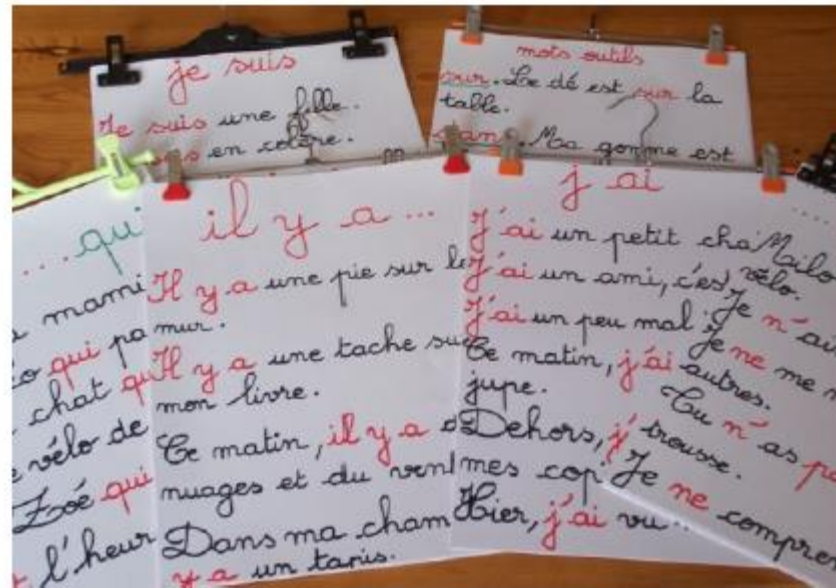 je suis
Je suis une fille.
en colère.
mots outils
sur. Le dé est sur la
table.
dans. Ma gomme est
...qui
mami
qui pa
chat qu
vélo de
Zoé qui
l'heur
il y a...
Il y a une pie sur le
mur.
Il y a une tache su
mon livre.
Ce matin, il y a d
nuages et du vent
Dans ma cham
y a un tapis.
j'ai
J'ai un petit cha
J'ai un ami, c'es
J'ai un peu mal.
Ce matin, j'ai
jupe.
Dehors, j'
mes cop
Hier, j'ai vu...
Mailo
vélo.
Je n'ai
Je ne me
autres.
Tu n'as p
trousse.
Je ne compren